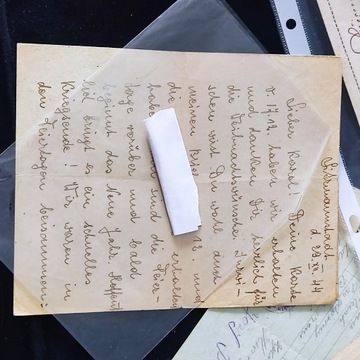 Litzmannstadt
d 29.XII.44
Lieber Karol! Deine Karte
v. 17.12. haben wir erhalten
und danken Dir herzlich für
die Weihnachtswünsche. Inzwi-
schen wirst Du wohl auch
meinen Brief 12. und
die erhalten
habe sind die Feier-
tage vorüber und bald
beginnt das Neue Jahr. Hoffent
lich bringt es ein schnelles
Kriegsende! Wir waren in
den Feiertagen beisammen.